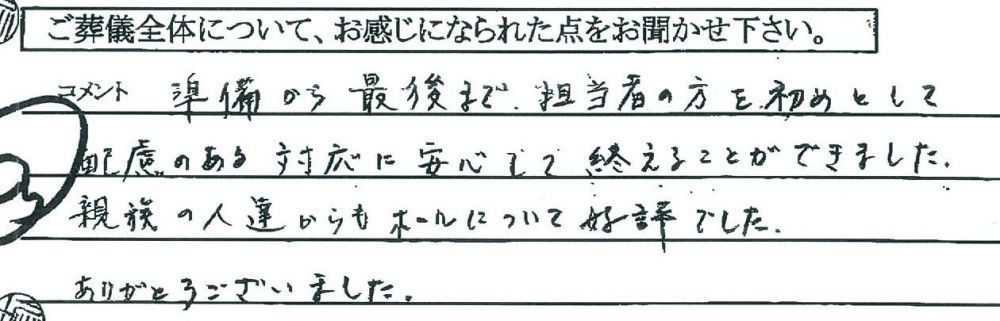 ご葬儀全体について、お感じになられた点をお聞かせ下さい。
コメント 準備から最後まで、担当者の方を初めとして
配慮のある対応に安心して終えることができました。
親族の人達からもホールについて好評でした。
ありがとうございました。